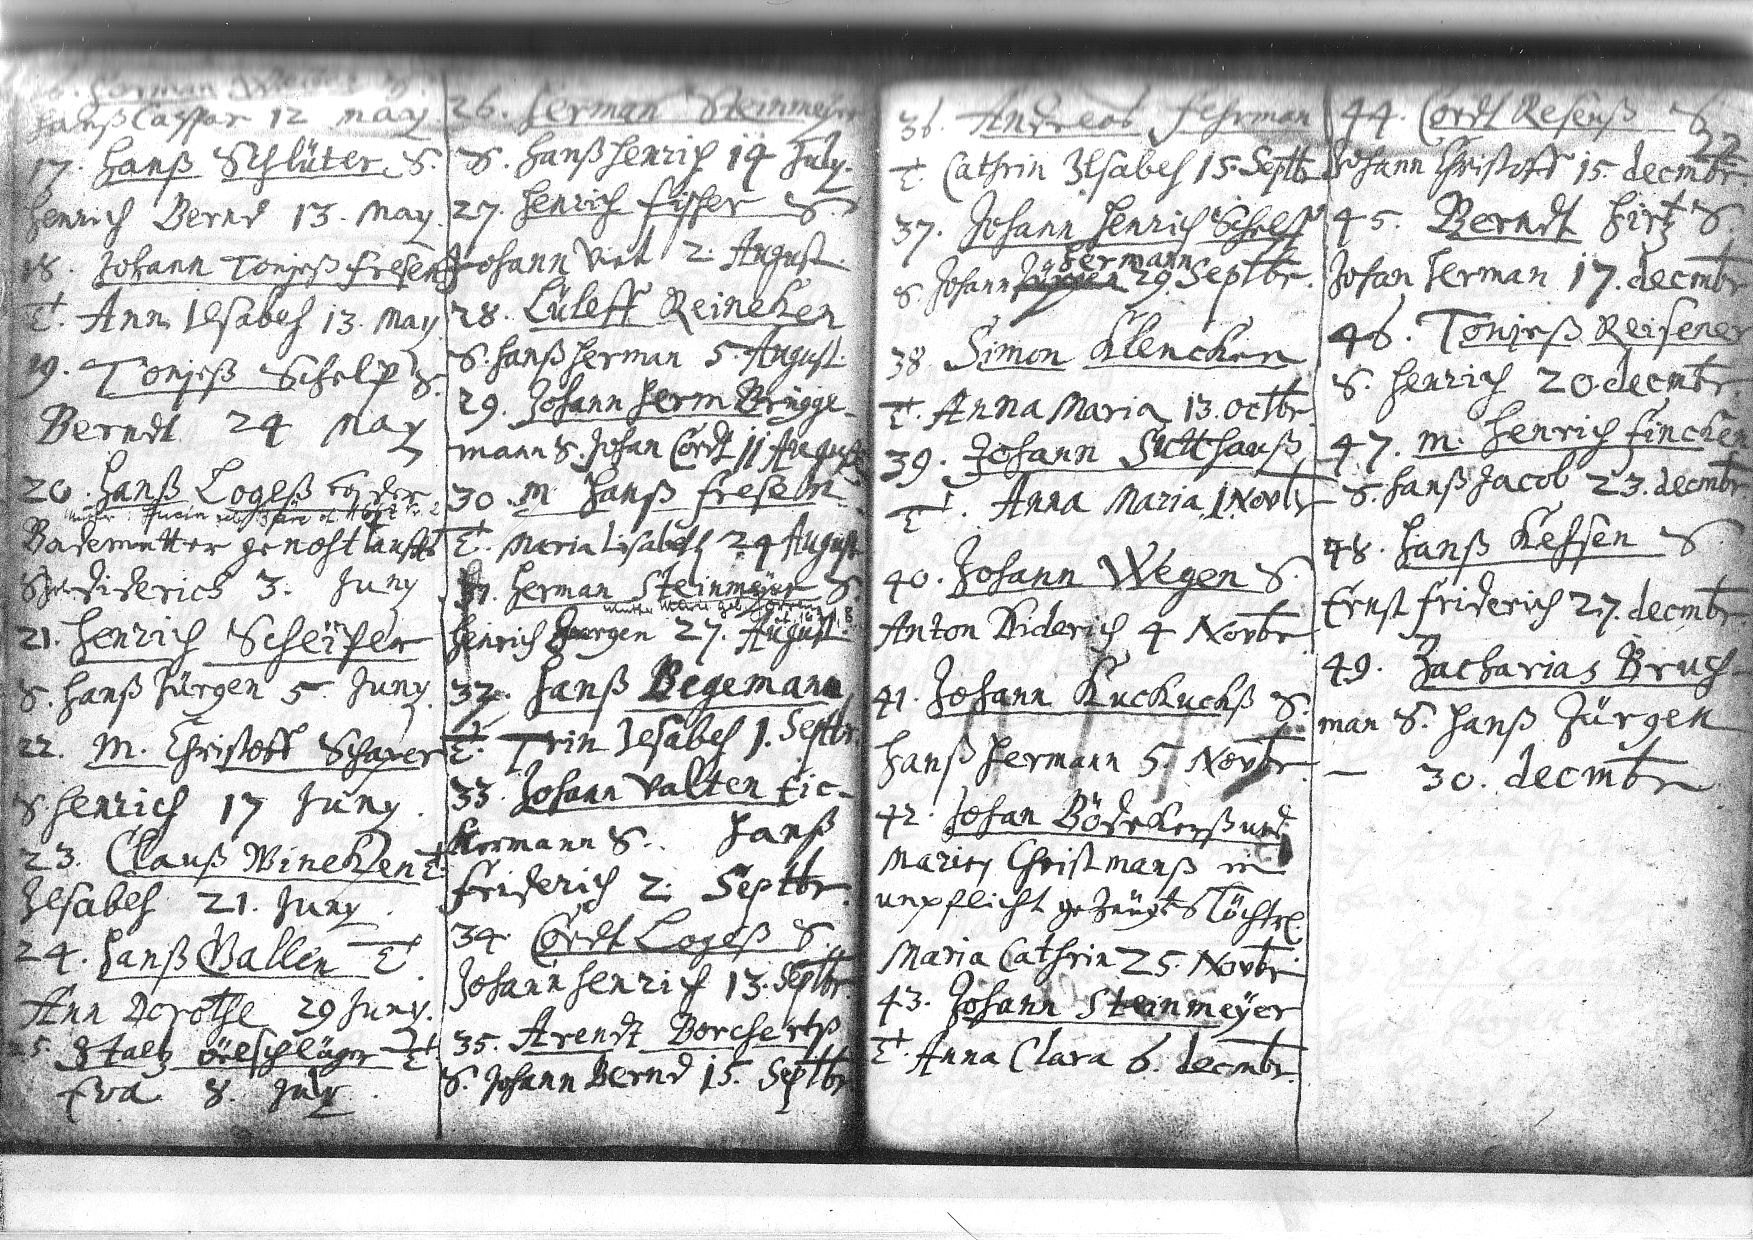 16. Herman Weber S.
Hanß Caspar 12 may
17. Hanß Schlüter S.
Henrich Bernd 13. May.
18. Johann Tonjeß Fresen
T. Ann Ilsabeh 13. May
19. Tonjeß Schelp S.
Berndt 24 May
20. Hanß Logeß
Bademutter
diderich 3. Juny
21. Henrich Scheiper
S. Hanß Jürgen 5 Juny.
22. M. Christoff Schaper
S. Henrich 17 Juny.
23. Clauß Wineken T.
Ilsabeh 21. Juny.
24. Hanß Ballen T.
Ann Dorothe 29 Juny.
25. Staltz ölschläger T
Eva 8. July
26. Herman Steinmeyer
S. Hanß Henrich 14 July.
27. Henrich Fischer S.
Johann 2. August.
28. Lüleff Reineken
S. Hanß Herman 5. August.
29. Johann Herm Brügge-
mann S. Johan Cordt 11 August
30 m Hanß Fresen
T. Maria Lisabeth 24 August
31. Herman Steinmeyer S.
Heinrich Jurgen 27. August.
32. Hanß Begemann
T. Trin Ilsabeh 1. Septbr.
33. Johann Valten Eic-
kermann S. Hanß
Friderich 2. Septbr.
34. Cordt Logeß S.
Johann Henrich 13. Septbr.
35. Arendt Borchertß
S. Johann Bernd 15. Septbr
36. Andreas Fehrman
T. Cathrin Ilsabeh 15. Septbr
37. Johann Henrich Schelff
Hermann
S. Johann Jürgen 29. Septbr.
38 Simon Klencken
T. Anna Maria 13. octbr.
39. Johann Sutthauß
T. Anna Maria 1 Novbr
40. Johann Wegen S.
Anton Diderich 4 Novbr.
41. Johann Kuckuckß S.
Hanß Hermann 5. Novbr.
42. Johan Bödekerß und
Marien Christmanß in
unpflicht gezeügts Töchtr.
Maria Cathrin 25. Novbr.
43. Johann Steinmeyer
T. Anna Clara 6. decmbr.
44. Cordt Resenß S
22
Johann Christoff 15. decmbr.
45. Berndt Hirtz S.
Johan Herman 17. decmbr
46. Tonjeß Reisener
S. Henrich 20. decmbr.
47. m. Henrich Fincken
S. Hanß Jacob 23. decmbr
48. Hanß Kessen S
Ernst Friderich 27. decmbr.
49. Zacharias Bruch-
man S. Hanß Jürgen
— 30. decmbr